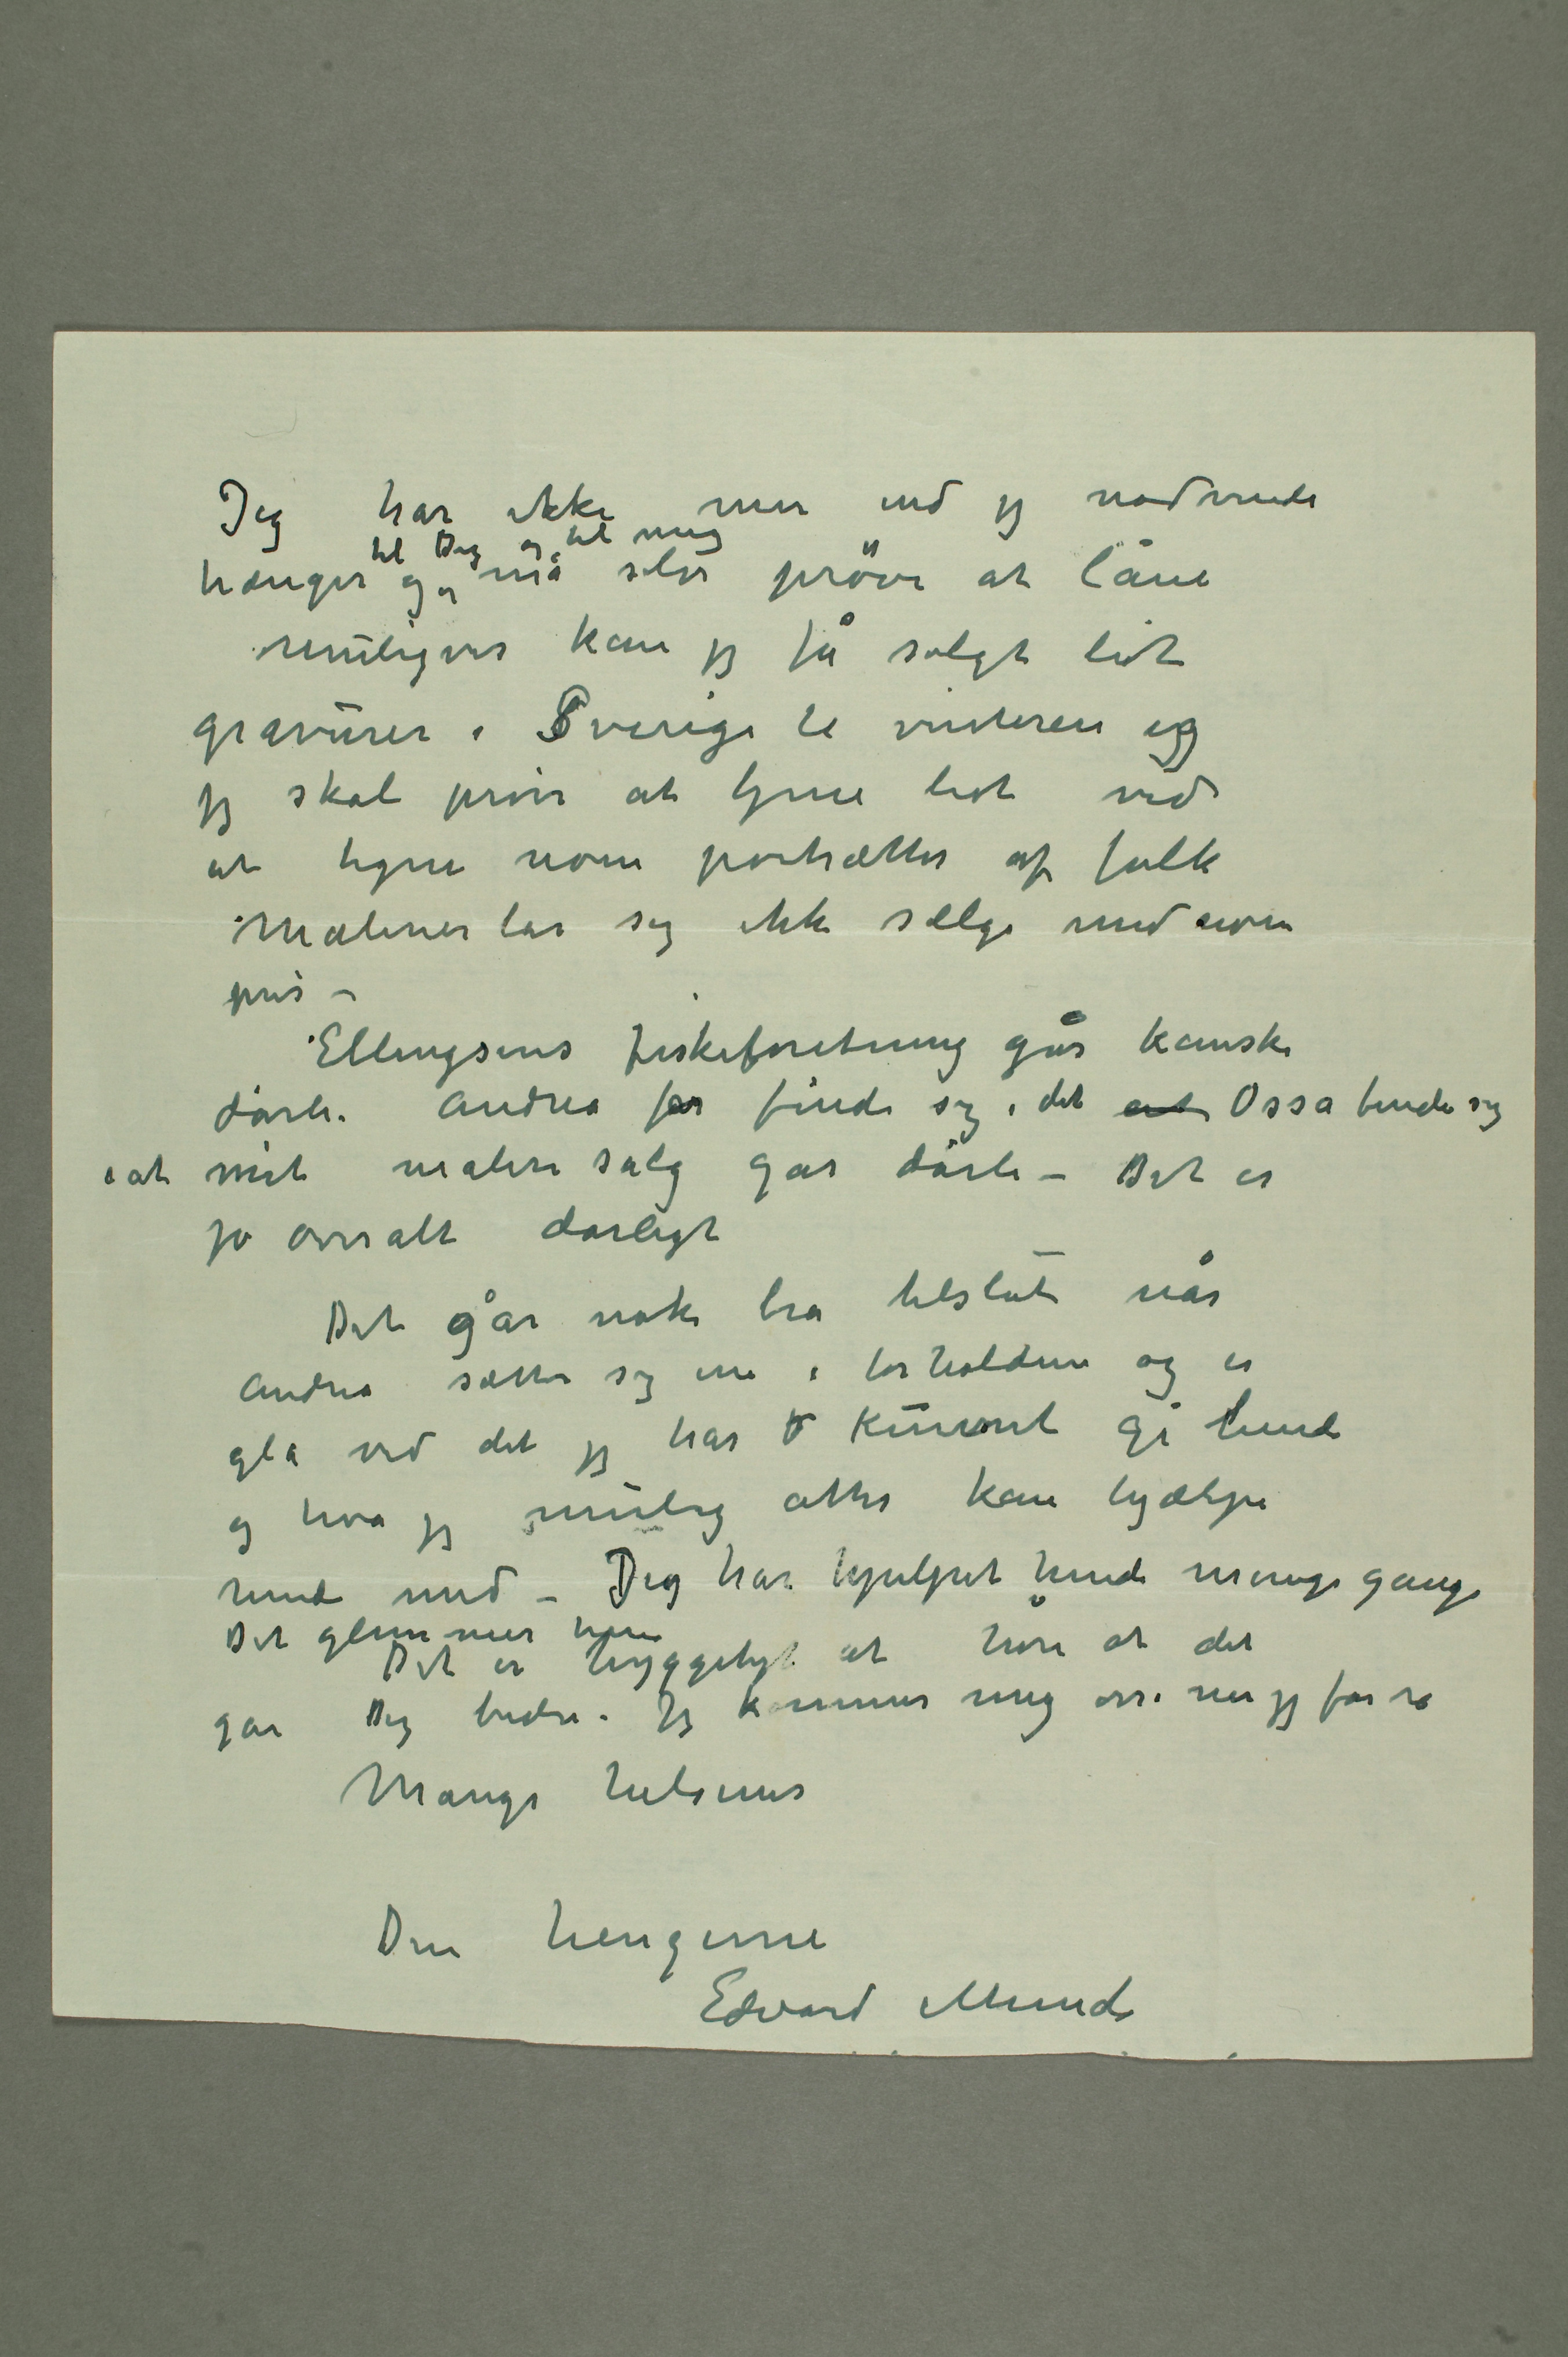 Jeg har ikke mer end jeg nødvendi
til Dig og til mig
trænger og må selv pröve at låne
muligvis kan jeg få solgt lidt
gravurer i Sverige til vinteren og
jeg skal prøve at tjene lidt ved
at tegne nom portrætter af folk
Malerier lar sig ikke sælge med nom
pris –
Ellingsens fiskeforetning går kanske
dårli. Andrea før finde sig i det at Ossa finde sig
i at mit maleri salg går dårli – Det er
jo overalt dårligt
Det går nok bra tilslut når
Andrea sætter sig ind i forholdene og er
gla ved det jeg har kunnet gi hende
og hva jeg mulig atter kan hjælpe
hende med – Jeg har hjulpet hende mange gange
Det glemmer hun
Det er hyggeligt at høre at det
går Dig bedre. Jeg kommer mig osse når jeg får ro
Mange hilsener
Din hengivne
Edvard Munch